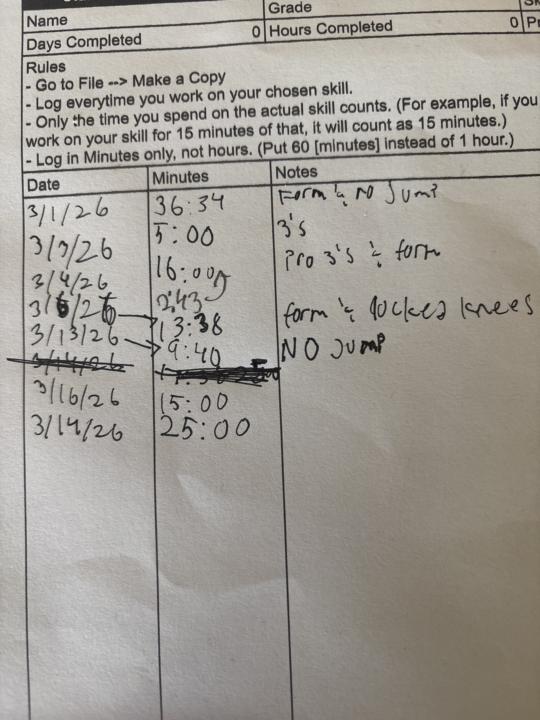 Name Grade
Days Completed 0 Hours Completed 0
Rules
- Go to File --> Make a Copy
- Log everytime you work on your chosen skill.
- Only the time you spend on the actual skill counts. (For example, if you
work on your skill for 15 minutes of that, it will count as 15 minutes.)
- Log in Minutes only, not hours. (Put 60 [minutes] instead of 1 hour.)
Date Minutes Notes
3/1/26 36:34 Form & NO Jump
3/3/26 5:00 3's
3/4/26 16:00 Pro 3's & form
3/6/26 2:43
13:38 form & locked knees
3/13/26 9:40 NO Jump
3/16/26 15:00
3/14/26 25:00